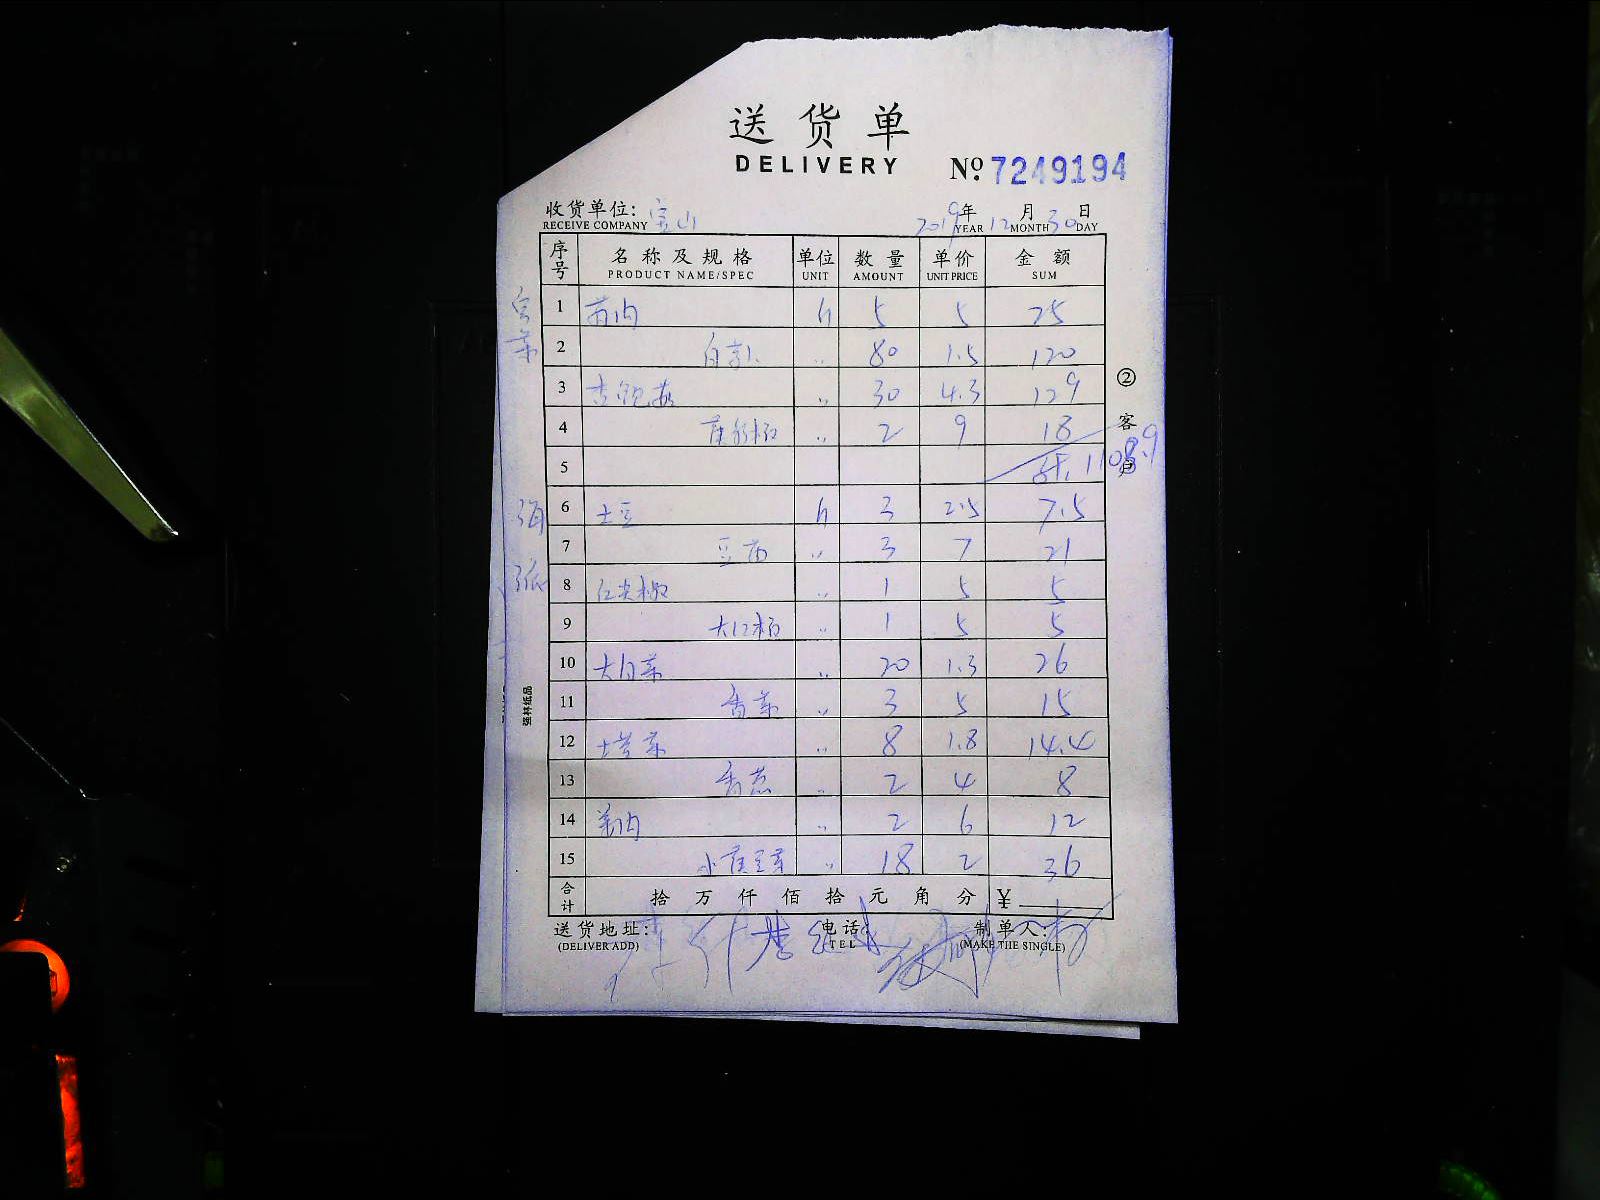 送货单
DELIVERY
№ 7249194
收货单位: 宝山 2019年12月30日
RECEIVE COMPANY YEAR MONTH DAY
序号 名称及规格 单位 数量 单价 金额
PRODUCT NAME/SPEC UNIT AMOUNT UNIT PRICE SUM
1 5 5 25
2 〃 80 1.5 120
3 杏鲍菇 〃 30 4.3 129
4 〃 2 9 18
5 1108.9
6 土豆 3 2.5 7.5
7 〃 3 7 21
8 红尖椒 〃 1 5 5
9 〃 1 5 5
10 大白菜 〃 20 1.3 26
11 香菜 〃 3 5 15
12 塔菜 〃 8 1.8 14.4
13 香葱 〃 2 4 8
14 〃 2 6 12
15 小黄豆芽 〃 18 2 36
合计 拾万仟佰拾元角分 ¥
送货地址: 电话: 制单人:
(DELIVER ADD) TEL (MAKE THE SINGLE)
② 客户
强林纸品